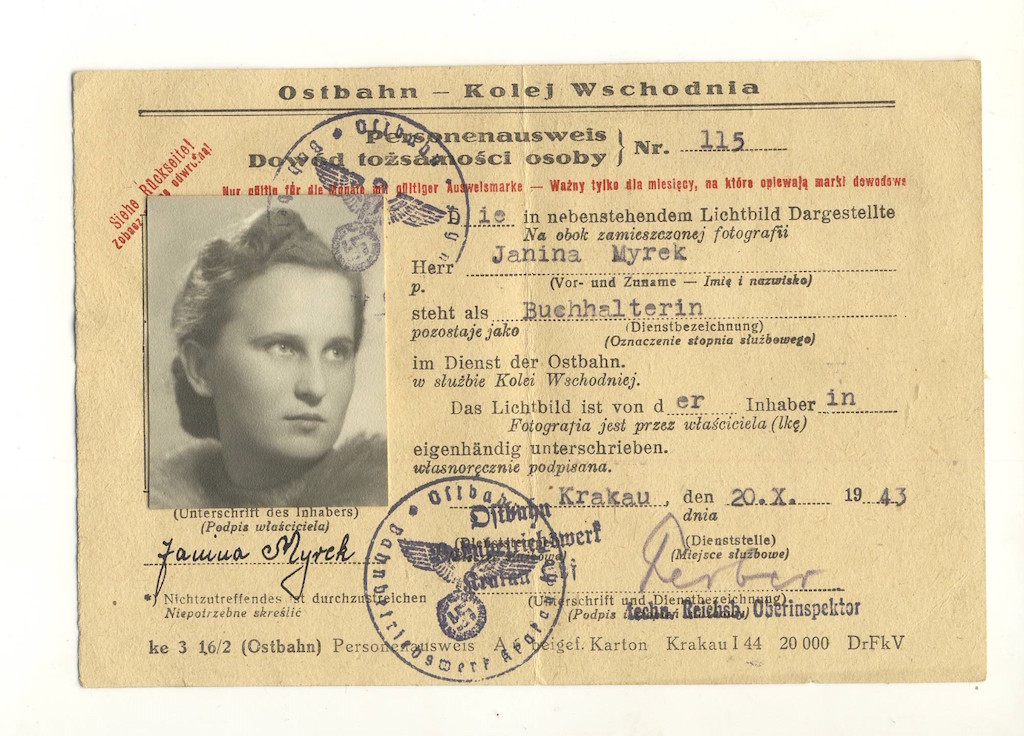 Ostbahn – Kolej Wschodnia
Personenausweis
Dowód tożsamości osoby
Nr. 115
Siehe Rückseite!
Nur gültig für die Monate mit gültiger Ausweismarke — Ważny tylko dla miesięcy, na które opiewają marki dowodowe
D ie in nebenstehendem Lichtbild Dargestellte
Na obok zamieszczonej fotografii
Janina Myrek
Herr
p.
(Vor- und Zuname — Imię i nazwisko)
steht als Buchhalterin
pozostaje jako (Dienstbezeichnung)
(Oznaczenie stopnia służbowego)
im Dienst der Ostbahn.
w służbie Kolei Wschodniej.
Das Lichtbild ist von d er Inhaber in
Fotografia jest przez właściciela (lkę)
eigenhändig unterschrieben.
własnoręcznie podpisana.
Krakau, den 20.X. 1943
dnia
(Unterschrift des Inhabers)
(Podpis właściciela)
Janina Myrek
Ostbahn
Bahnbetriebswerk
Krakau
(Dienststelle)
(Miejsce służbowe)
Gerber
(Unterschrift und Dienstbezeichnung)
(Podpis
Techn. Reichsb. Oberinspektor
*) Nichtzutreffendes ist durchzustreichen
Niepotrzebne skreślić
Ostbahn
Bahnbetriebswerk Krakau
ke 3 16/2 (Ostbahn) Personenausweis A 6 beigef. Karton Krakau I 44 20 000 DrFkV